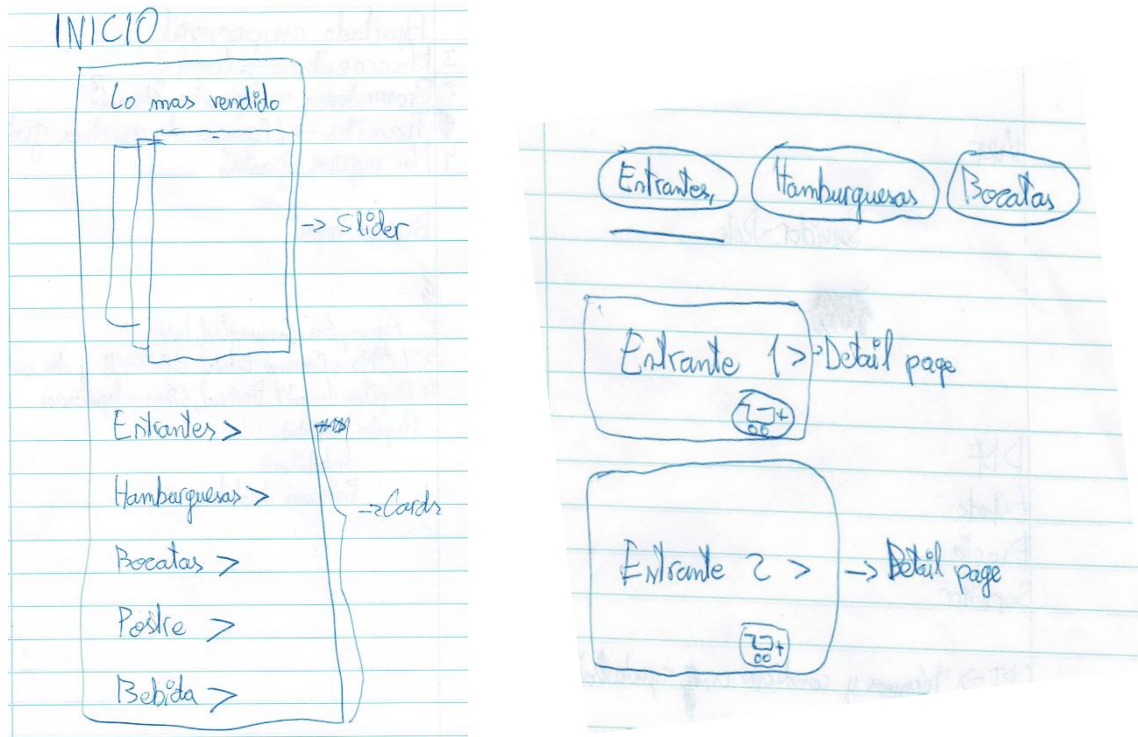 INICIO
Lo mas vendido
→ Slider
Entrantes >
Hamburguesas >
→ Cards
Bocatas >
Postre >
Bebida >
Entrantes Hamburguesas Bocatas
Entrante 1 > → Detail page
+
Entrante 2 > → Detail page
+